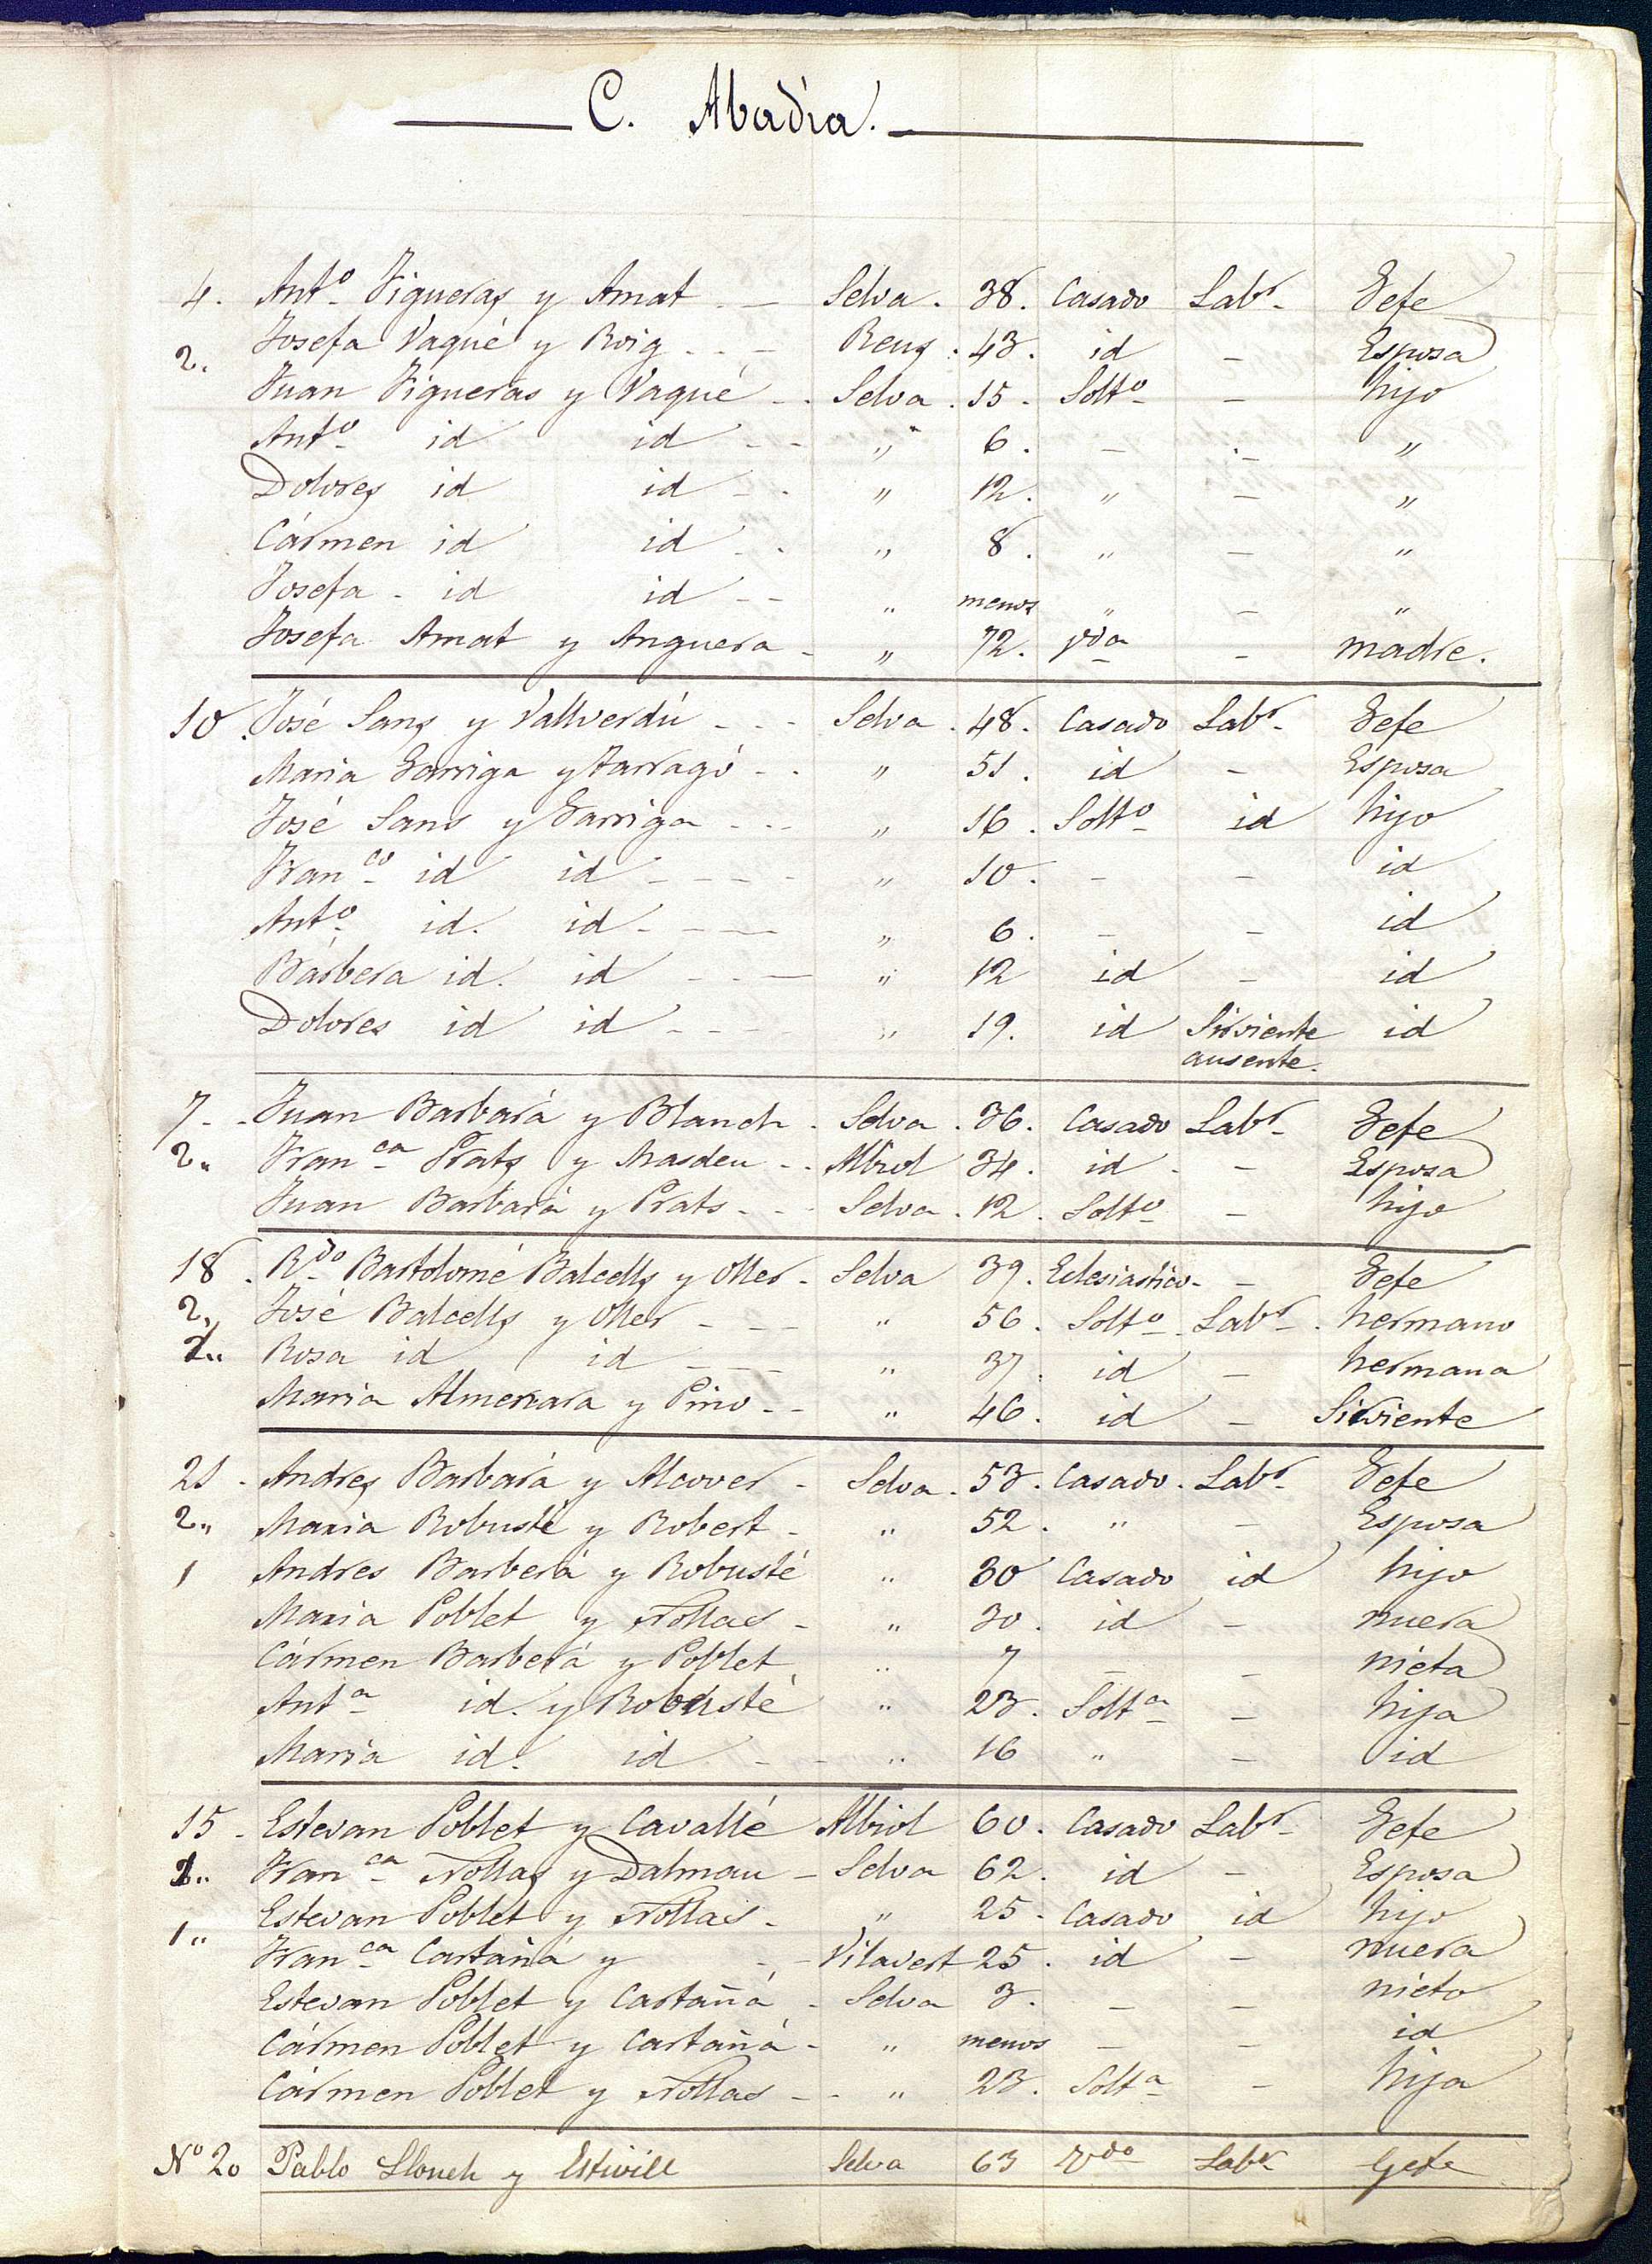 C. Abadia.
4. Ant.º Figueras y Amat — Selva. 38. Casado Lab.r Gefe
Josefa Vaqué y Roig - - - Reus. 43. id — Esposa
2.
Juan Figueras y Vaqué - - Selva. 15. Solt.º — hijo
Ant.º id id - - „ 6. — — „
Dolores id id - - „ 12. „ — „
Cármen id id - - „ 8. „ — „
Josefa - id id - - „ menos „ — „
Josefa Amat y Anguera - „ 72. Vda — madre.
10. José Sans y Vallverdú - - - Selva. 48. Casado Lab.r Gefe
Maria Garriga y Farragó - - „ 51. id — Esposa
José Sans y Garriga - - - „ 16. Solt.º id hijo
Fran.co id id - - - - „ 10. — — id
Ant.º id. id - - - - „ 6. — — id
Bárbera id. id - - - „ 12 id — id
Dolores id id - - „ 19. id Sirviente id
ausente.
7 - - Juan Barbará y Blanch - Selva. 36. Casado Lab.r Gefe
2„ Fran.ca Prats y Masdeu - - Albiol 34. id - — Esposa
Juan Barbará y Prats - - - Selva. 12. Solt.º — hijo
18. R.do Bartolomé Balcells y Oller - Selva 39. Eclesiastico - — Gefe
2„ José Balcells y Oller - - - „ 56. Solt.º Lab.r - hermano
2„ Rosa id id - - - „ 37. id — hermana
Maria Almenara y Pino - - „ 46. id — Sirviente
21 - Andres Barbará y Alcover - Selva. 53. Casado. Lab.r Gefe
2„ Maria Robusté y Robert - „ 52. „ — Esposa
1 Andres Barberá y Robusté „ 30 Casado id hijo
Maria Poblet y Nollas - „ 30. id — nuera
Cármen Barberá y Poblet „ 7 — — nieta
Ant.a id. y Robusté „ 23. Solt.a — hija
Maria id. id - - „ 16 „ — id
15 - Estevan Poblet y Cavallé Albiol 60. Casado Lab.r Gefe
2„ Fran.ca Nollas y Dalmau - Selva 62. id — Esposa
Estevan Poblet y Nollas - „ 25. Casado id hijo
1„
Fran.ca Cartañá y - - Vilavert 25. id — nuera
Estevan Poblet y Cartañá - Selva 3. — — nieto
Cármen Poblet y Cartañá - „ menos — — id
Cármen Poblet y Nollas - - „ 23. Solt.a — hija
Nº 20 Pablo Llonch y Estivill Selva 63 Vdo Labr Gefe